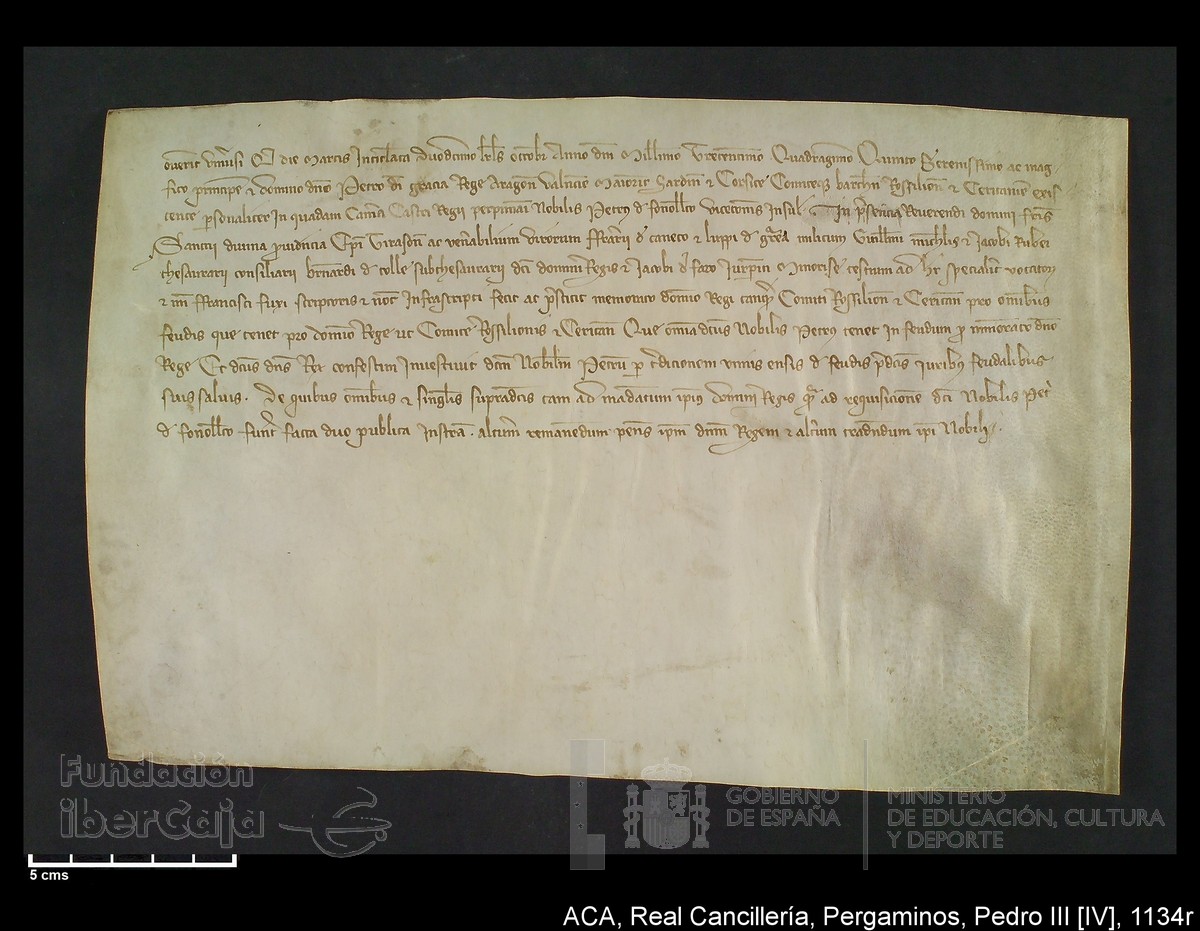 overit universi Qd die Martis Intitlata duodecimo kls octobr Anno dni Millimo Trecentesimo Quadragesimo Quinto Serenissimo ac mag
fico principe et domino dno Petro dei gracia Rege Aragon Valencie Maioric Sardin et Corsice Comiteq barchn Rossilion et Ceritanie exis
tente personaliter in quadam Camera Castri Regii perpiniani Nobilis Petrus de fonollto vicecomes Insul In presencia Reverendi domini fratris
Sancii divina providencia Epi Tirason ac venerabilium virorum fferrarii de caneto et luppi de gurrea militum Guillmi michlis et Jacobi Rubei
thesaurarii consiliarii bernardi de tolle subthesaurarii dci domini Regis et Jacobi de faro Jurisperiti Minorise testium ad hec specialiter vocator
et mei ffrancisci fuxi scriptoris et not Infrascripti fecit ac prestitit memorato domino Regi tanq Comiti Rossilion et Ceritan pro omnibus
feudis que tenet pro domino Rege ut Comite Rossilionis et Ceritan Que omnia dictus Nobilis Petrus tenet in feudum pro memorato dno
Rege Et dcus dns Rex confestim Investivit dcm Nobilem Petrum per tradicionem unius ensis de feudis pdcis Juribus feudalibus
suis salvis. De quibus omnibus et singlis supradcis tam ad mandatum ipius domini Regis quam ad requisicione dci Nobilis Petri
de fonollto fuert facta duo publica Instra. alterum remanendum penes ipm dnm Regem et alterum tradendum ipi Nobili.
Fundación
iberCaja
GOBIERNO
DE ESPAÑA
MINISTERIO
DE EDUCACIÓN, CULTURA
Y DEPORTE
5 cms
ACA, Real Cancillería, Pergaminos, Pedro III [IV], 1134r